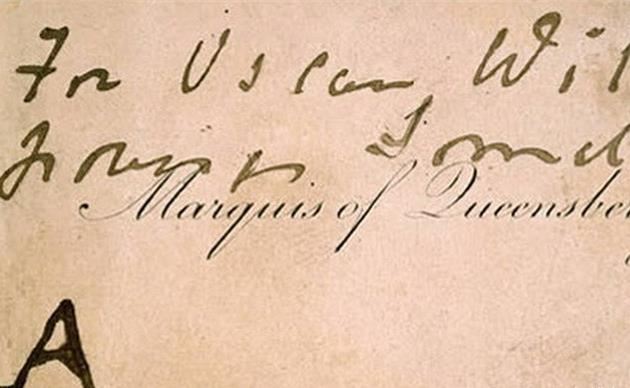 For Oscar Wil
posing Somd
Marquis of Queensber
A